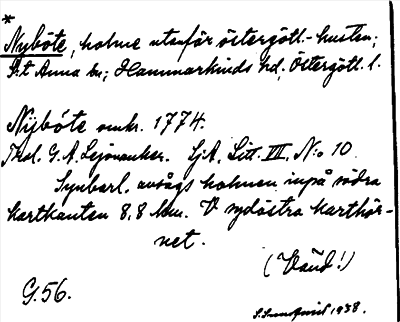 *
Nyböte, holme utanför östergötl.-kusten;
S:t Anna sn; Hammarkinds hd, Östergötl. l.
Nyböte omkr. 1774.
G. A. Lejonanker. SjA, Litt. III, N:o 10
Synbarl. avsågs holmen inpå södra
kartkanten 8,8 km. V sydöstra karthör-
net.
(Vänd!)
G.56.
1938.